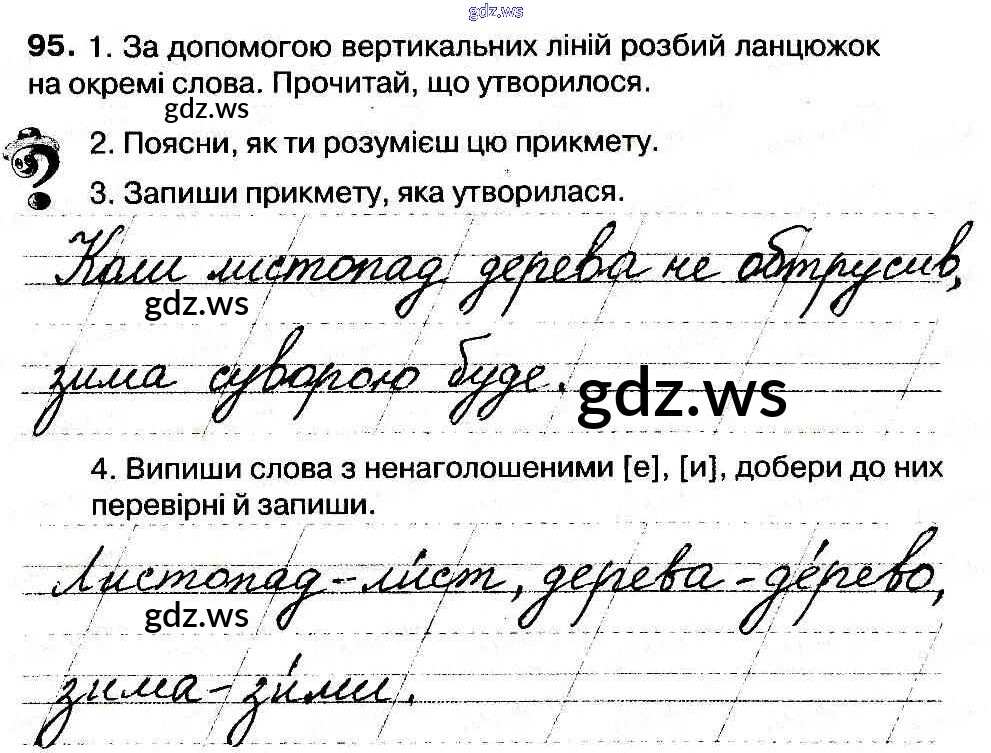 gdz.ws
95. 1. За допомогою вертикальних ліній розбий ланцюжок
на окремі слова. Прочитай, що утворилося.
gdz.ws
2. Поясни, як ти розумієш цю прикмету.
3. Запиши прикмету, яка утворилася.
Коли листопад дерева не обтрусив,
gdz.ws
зима суворою буде.
gdz.ws
4. Випиши слова з ненаголошеними [е], [и], добери до них
перевірні й запиши.
Листопад – ли́ст, дерева – де́рево,
gdz.ws
зима – зи́ми.